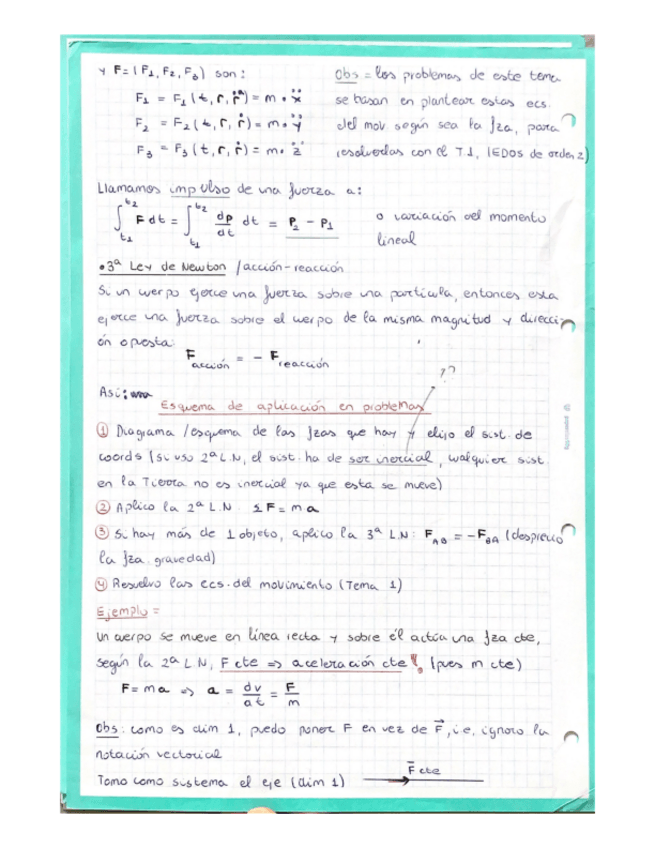 y F=(F₁, F₂, F₃) son:
F₁ = F₁(t, r, ṙ) = m · ẍ
F₂ = F₂(t, r, ṙ) = m · ÿ
F₃ = F₃(t, r, ṙ) = m · z̈
Obs = los problemas de este tema
se basan en plantear estas ecs.
del mov. según sea la fza, para
resolverlas con el T1, (EDOs de orden 2)
Llamamos impulso de una fuerza a:
∫_{t₁}^{t₂} F dt = ∫_{t₁}^{t₂} dp/dt dt = P₂ - P₁
o variación del momento
lineal
• 3ª Ley de Newton / acción-reacción
Si un cuerpo ejerce una fuerza sobre una partícula, entonces esta
ejerce una fuerza sobre el cuerpo de la misma magnitud y direcci-
ón opuesta:
F_acción = - F_reacción
??
Así:
Esquema de aplicación en problemas
① Diagrama / esquema de las fzas que hay y elijo el sist. de
coords (si uso 2ª L.N, el sist. ha de ser inercial, cualquier sist.
en la Tierra no es inercial ya que esta se mueve)
② Aplico la 2ª L.N. ΣF = ma
③ Si hay más de 1 objeto, aplico la 3ª L.N: F_AB = -F_BA (desprecio
la fza. gravedad)
④ Resuelvo las ecs. del movimiento (Tema 1)
Ejemplo =
Un cuerpo se mueve en línea recta y sobre él actúa una fza cte,
según la 2ª L.N, F cte => aceleración cte! (pues m cte)
F = ma => a = dv/dt = F/m
Obs: como es dim 1, puedo poner F en vez de F⃗, i.e, ignoro la
notación vectorial
Tomo como sistema el eje (dim 1)
F⃗ cte